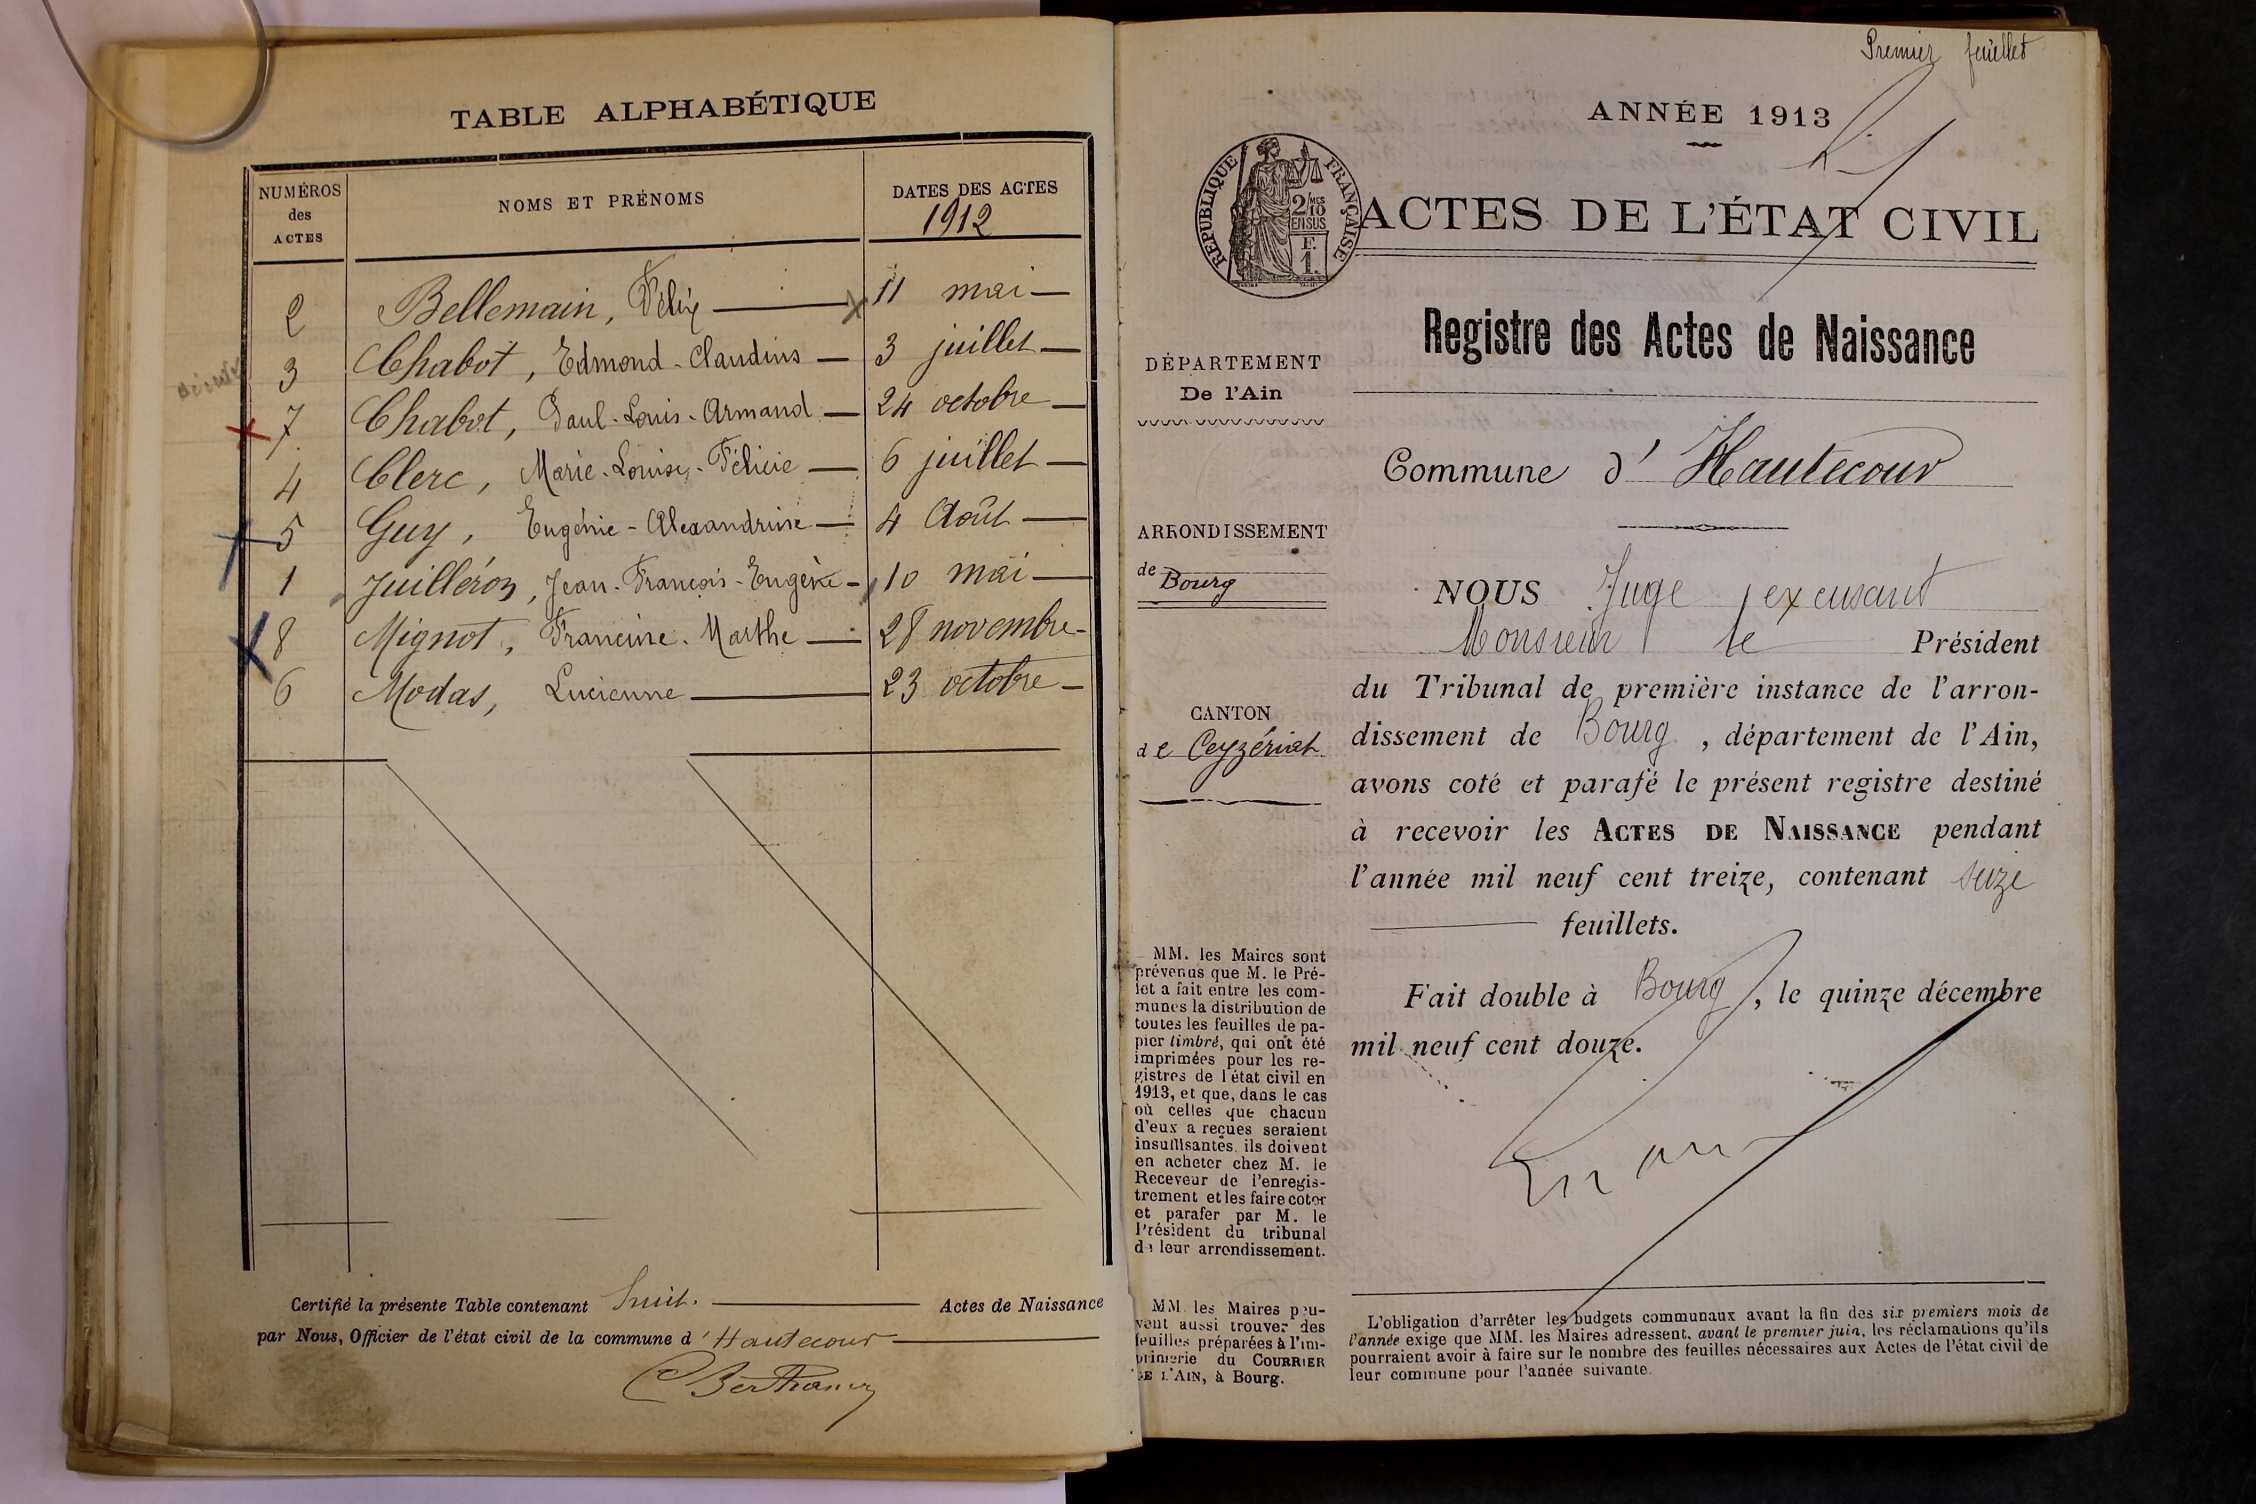 TABLE ALPHABÉTIQUE
NUMÉROS des ACTES
NOMS ET PRÉNOMS
DATES DES ACTES
1912
2 Bellemain, Félix 11 mai
3 Chabot, Edmond-Claudius 3 juillet
7 Chabot, Paul-Louis-Armand 24 octobre
4 Clerc, Marie-Louise-Félicie 6 juillet
5 Guy, Eugénie-Alexandrine 4 Août
1 Juilléron, Jean-François-Eugène 10 mai
8 Mignot, Francine-Marthe 28 novembre
6 Modas, Lucienne 23 octobre
Certifié la présente Table contenant huit. Actes de Naissance
par Nous, Officier de l'état civil de la commune d'Hautecour
Premier feuillet
ANNÉE 1913
RÉPUBLIQUE FRANÇAISE
2/10 MES EN SUS
F. 1.
ACTES DE L'ÉTAT CIVIL
Registre des Actes de Naissance
DÉPARTEMENT
De l'Ain
ARRONDISSEMENT
de Bourg
CANTON
de Ceyzériat
MM. les Maires sont
prévenus que M. le Pré-
fet a fait entre les com-
munes la distribution de
toutes les feuilles de pa-
pier timbré, qui ont été
imprimées pour les re-
gistres de l'état civil en
1913, et que, dans le cas
où celles que chacun
d'eux a reçues seraient
insuffisantes, ils doivent
en acheter chez M. le
Receveur de l'enregis-
trement et les faire coter
et parafer par M. le
Président du tribunal
de leur arrondissement.
MM. les Maires peu-
vent aussi trouver des
feuilles préparées à l'im-
primerie du COURRIER
DE L'AIN, à Bourg.
Commune d'Hautecour
NOUS Juge excusant
Monsieur le Président
du Tribunal de première instance de l'arron-
dissement de Bourg, département de l'Ain,
avons coté et parafé le présent registre destiné
à recevoir les ACTES DE NAISSANCE pendant
l'année mil neuf cent treize, contenant seize
feuillets.
Fait double à Bourg, le quinze décembre
mil neuf cent douze.
L'obligation d'arrêter les budgets communaux avant la fin des six premiers mois de
l'année exige que MM. les Maires adressent, avant le premier juin, les réclamations qu'ils
pourraient avoir à faire sur le nombre des feuilles nécessaires aux Actes de l'état civil de
leur commune pour l'année suivante.